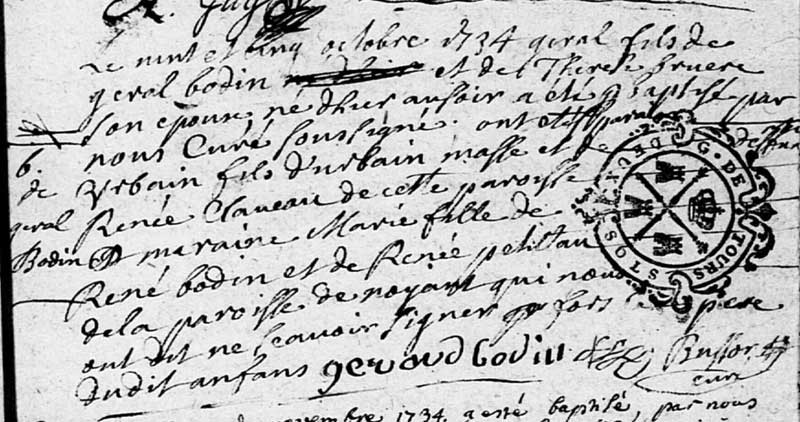 Le vint et cinq octobre 1734 geral fils de
geral bodin et de Therese bruere
son epouse né d'hier ausoir a eté Baptisé par
nous Curé soussigné. ont eté parain
Urbain fils d'urbain masse et de
Renée Claveau de cette paroisse
et maraine Marie fille de
René bodin et de Renée petitau
de la paroisse de noyant qui nous
ont dit ne sçavoir signer fors le pere
dudit anfans geraud bodin Bussor
curé
B.
de
geral
Bodin
G. DE TOURS
novembre 1734 a esté baptisé, par nous